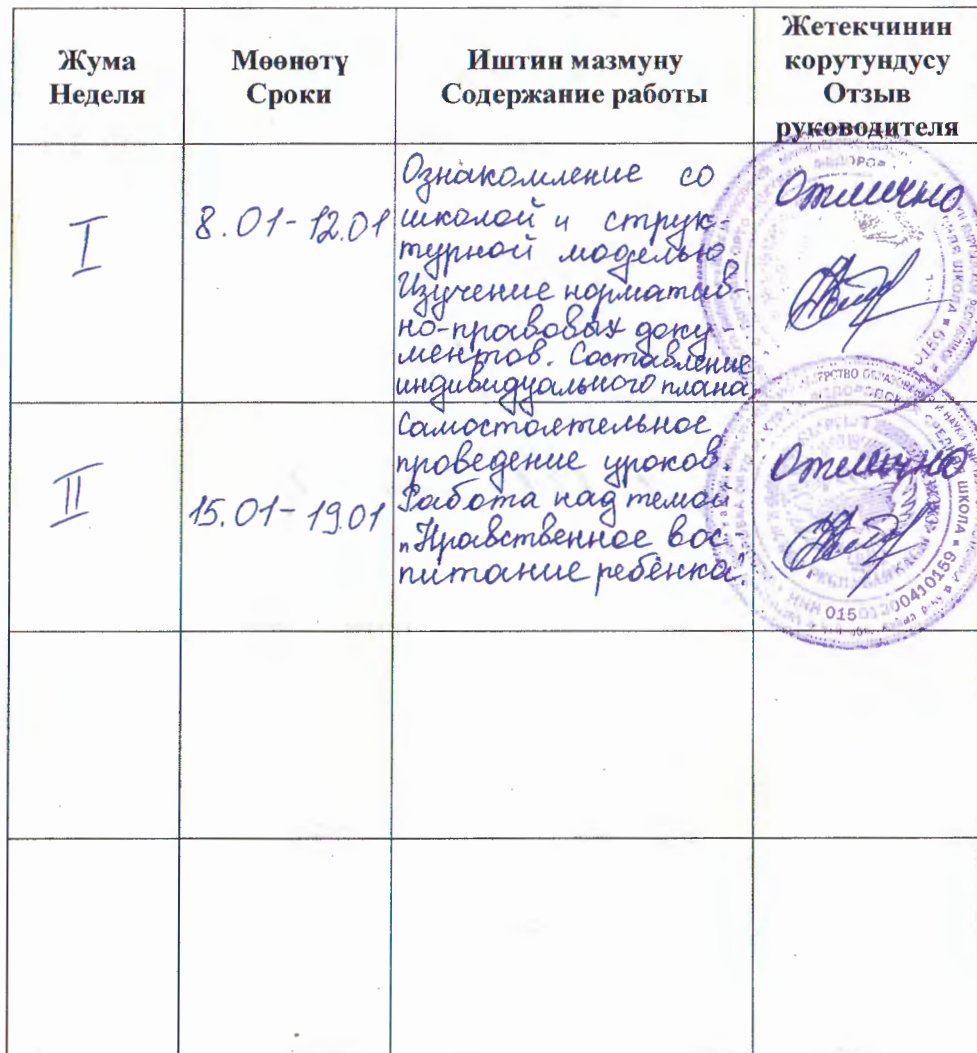 Жума
Неделя
Мөөнөтү
Сроки
Иштин мазмуну
Содержание работы
Жетекчинин
корутундусу
Отзыв
руководителя
I
8.01-12.01
Ознакомление со
школой и струк-
турной моделью
Изучение норматив-
но-правовых доку-
ментов. Составление
индивидуального плана
Отлично
II
15.01-19.01
Самостоятельное
проведение уроков.
Работа над темой
„Нравственное вос
питание ребёнка".
Отлично
ШКОЛА
0159
ШКОЛА
01501200410159